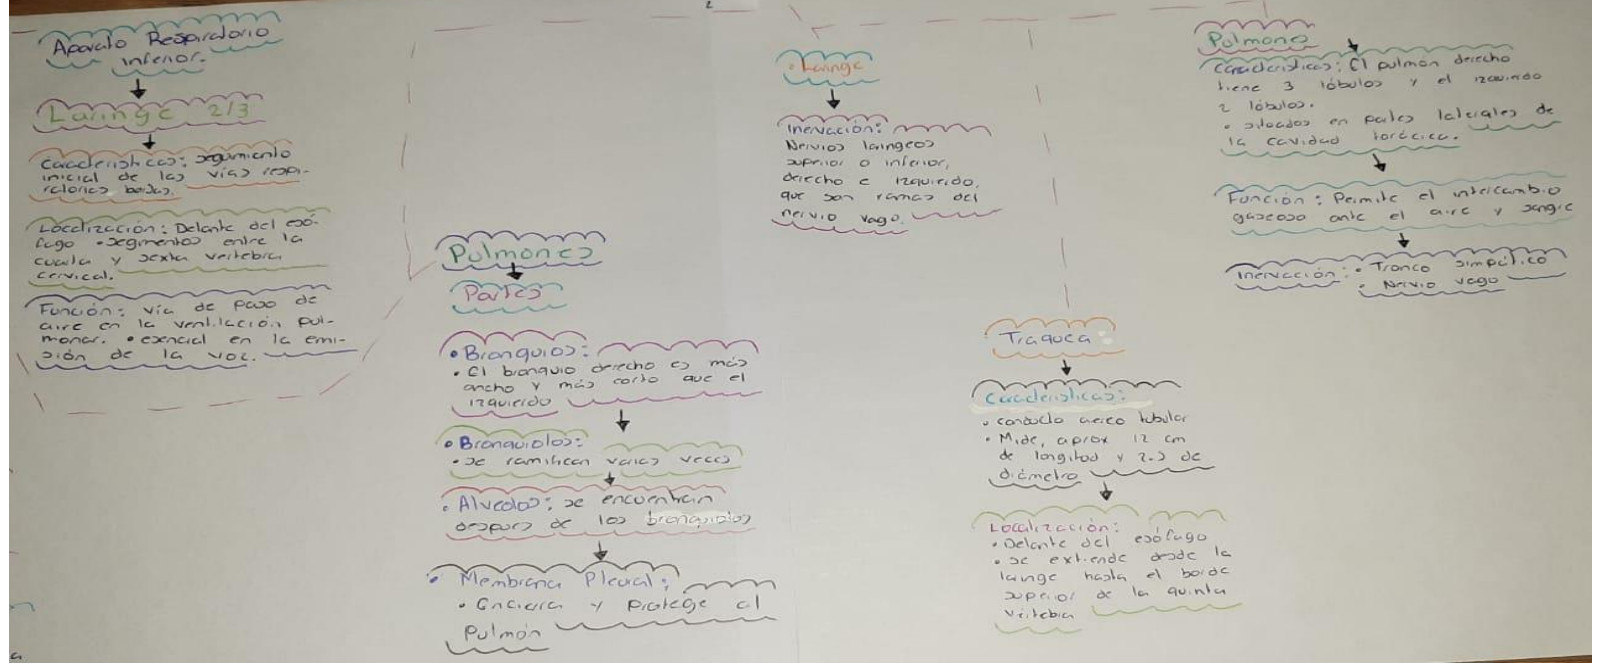 2
Aparato Respiratorio
inferior.
Laringe 2/3
Características: segumiento
inicial de las vías respi-
ratorias bajas.
Localización: Delante del esó-
fago • segmentos entre la
cuarta y sexta vertebra
cervical.
Función: vía de paso de
aire en la ventilación pul-
monar. • esencial en la emi-
sión de la voz.
Pulmones
Partes
• Bronquios:
• El bronquio derecho es más
ancho y más corto que el
izquierdo
• Bronquiolos:
• se ramifican varias veces
• Alveolos: se encuentran
despues de los bronquiolos
• Membrana Pleural:
• Encierra y protege al
Pulmón
• Laringe
Inervación:
Nervios laringeos
superior o inferior,
derecho e izquierdo,
que son ramas del
nervio vago.
Traquea:
Características:
• conducto aereo tubular
• Mide, aprox 12 cm
de longitud y 2.5 de
diámetro
Localización:
• Delante del esófago
• se extiende desde la
laringe hasta el borde
superior de la quinta
vertebra
Pulmones
Características: El pulmón derecho
tiene 3 lóbulos y el izquierdo
2 lóbulos.
• situados en partes laterales de
la cavidad torácica.
Función: Permite el intercambio
gaseoso ante el aire y sangre
Inervación: • Tronco simpático
• Nervio vago